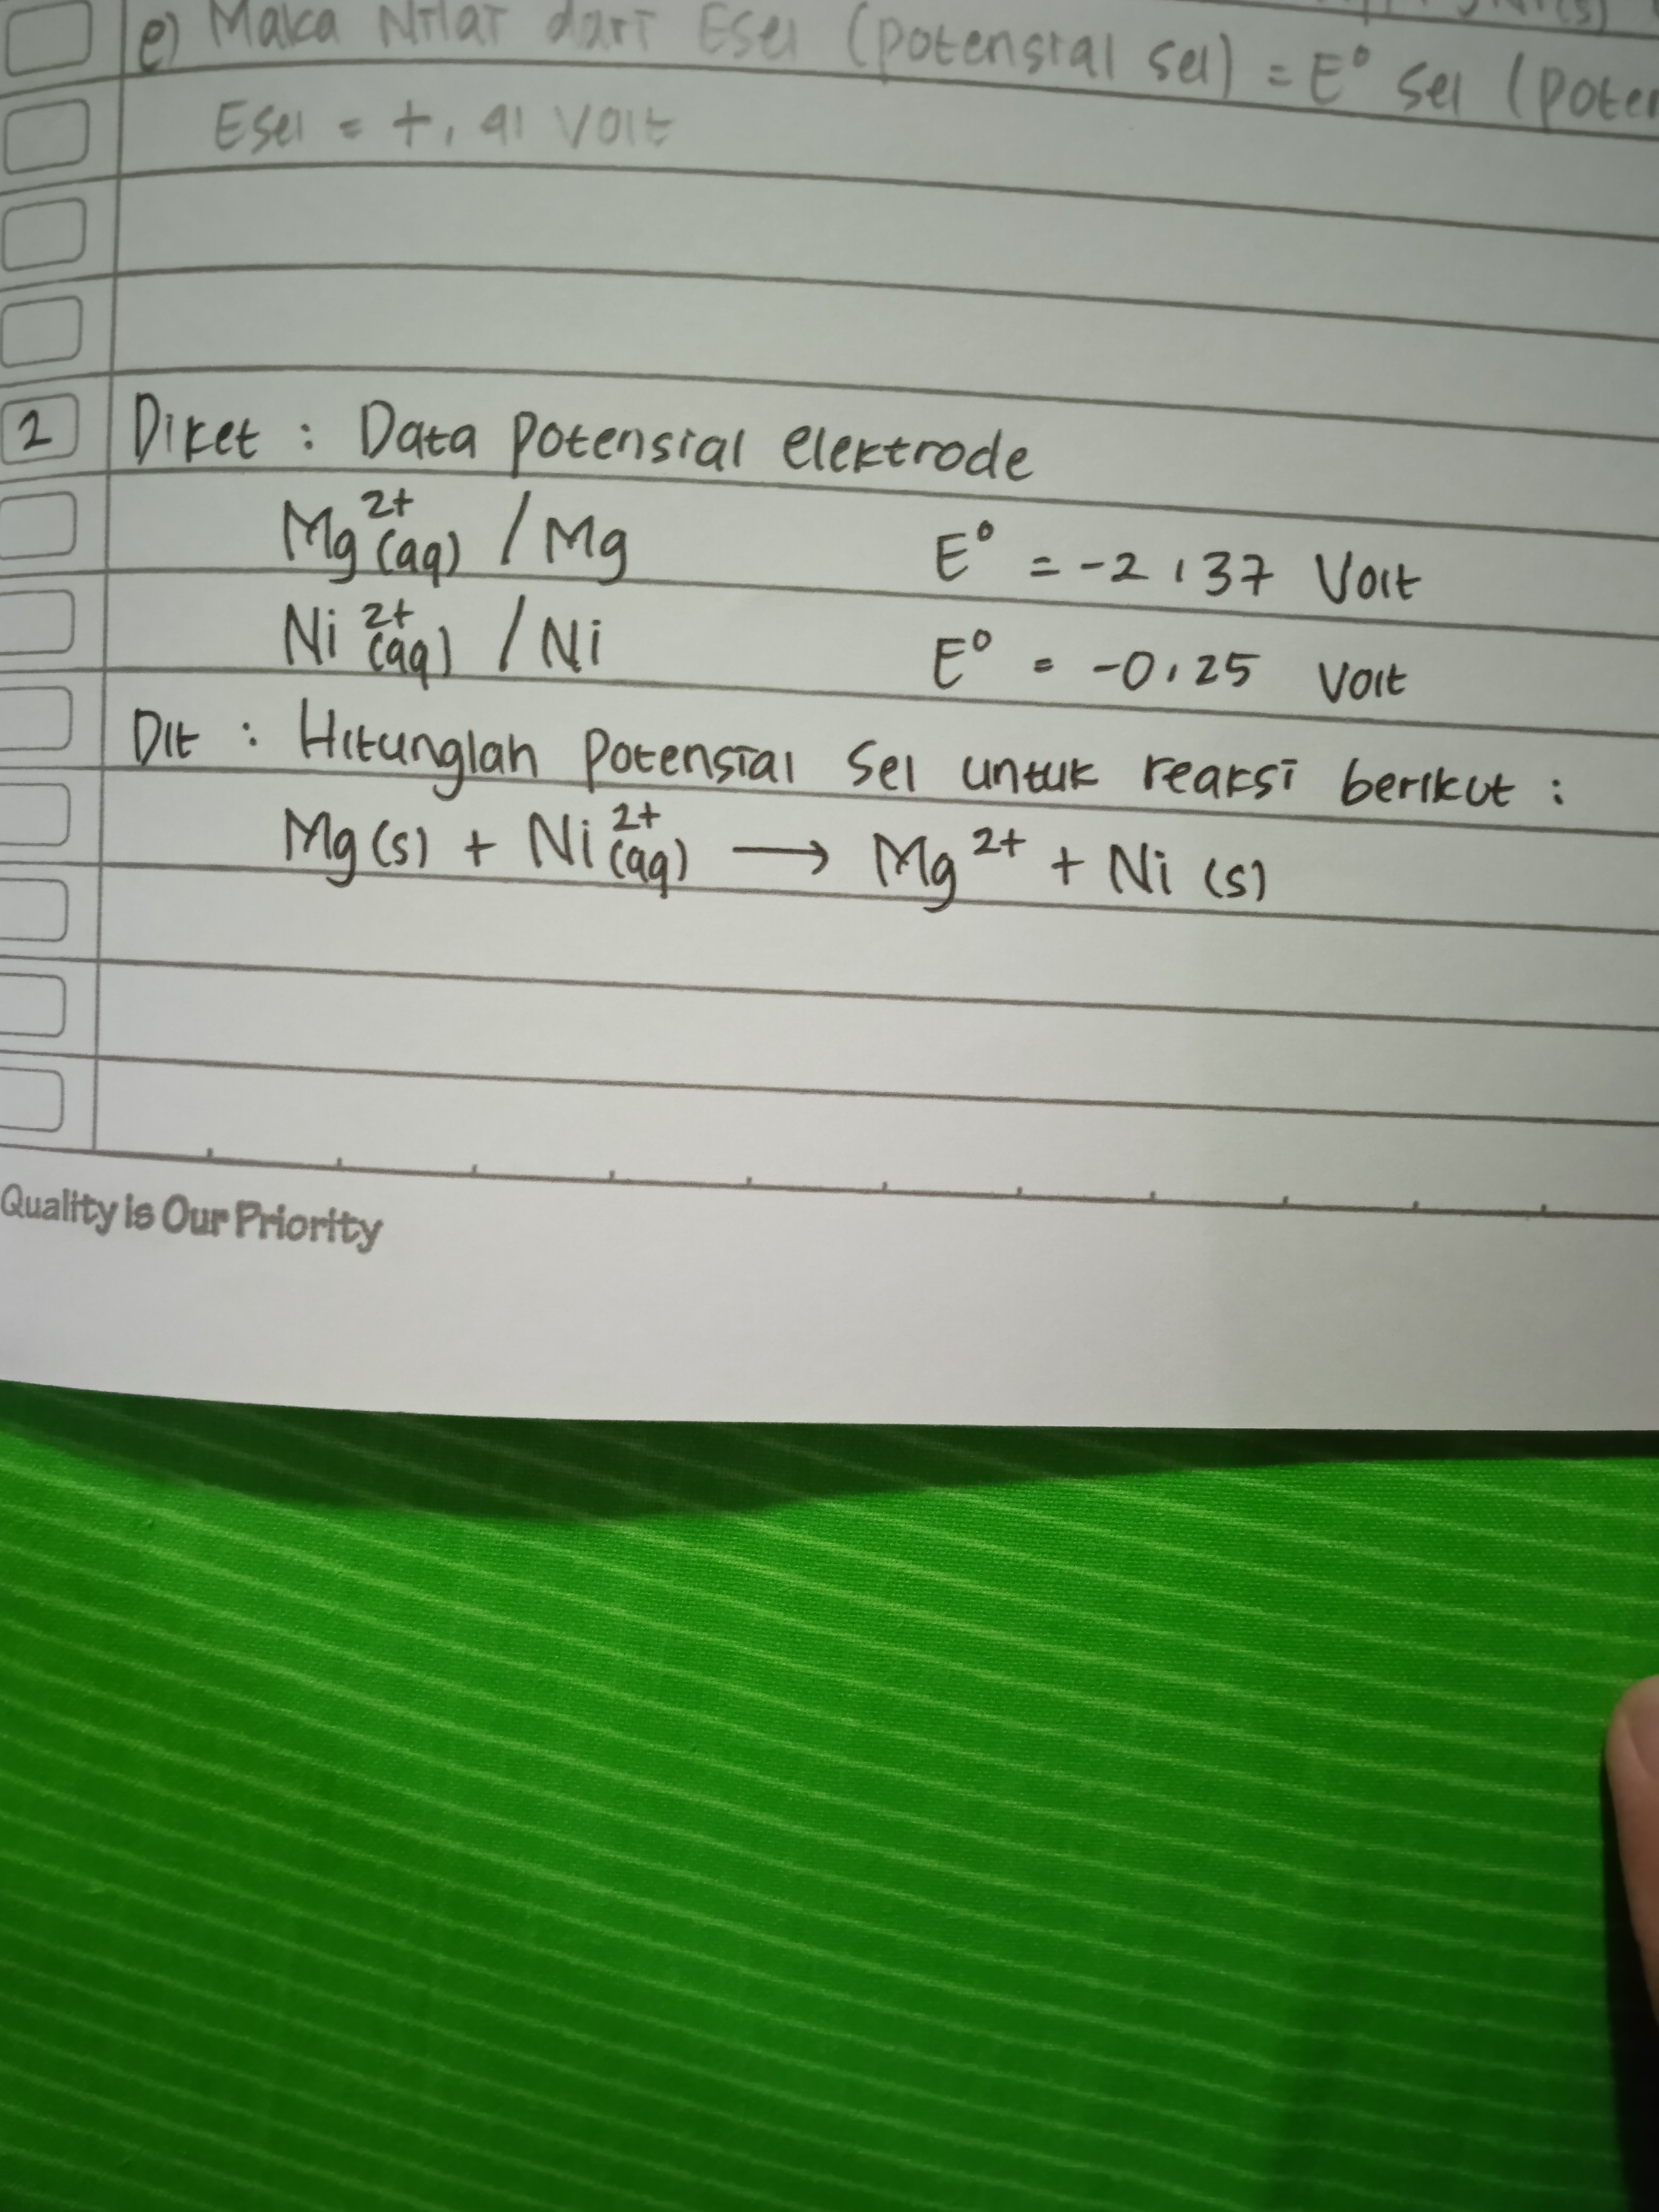 e) Maka Nilai dari Esel (potensial sel) = E° sel (
Esel = +, 91 Volt
2 Diket : Data potensial elektrode
Mg²⁺(aq) / Mg E° = -2,37 Volt
Ni²⁺(aq) / Ni E° = -0,25 Volt
Dit : Hitunglah Potensial Sel untuk reaksi berikut :
Mg (s) + Ni²⁺(aq) → Mg²⁺ + Ni (s)
Quality is Our Priority